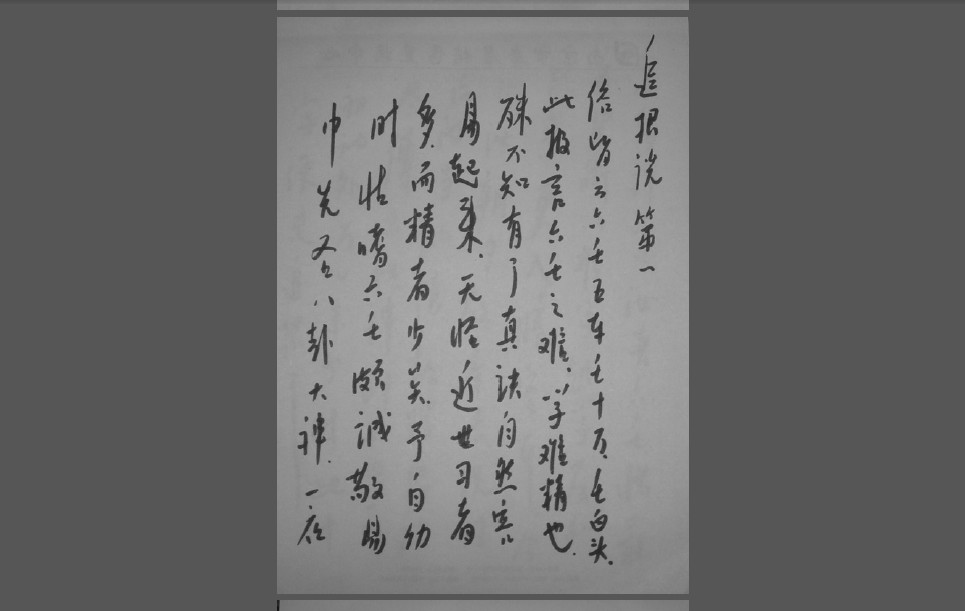 追根说第一
俗皆云六壬五车壬十万壬白头.
此报言六壬之难.学难精也.
殊不知有了真诀自然容
易起来.无怪近世习者
多.而精者少矣.予自幼
时 怙嗜六壬颇诚敬
巾 先又 八卦大禅.一夜